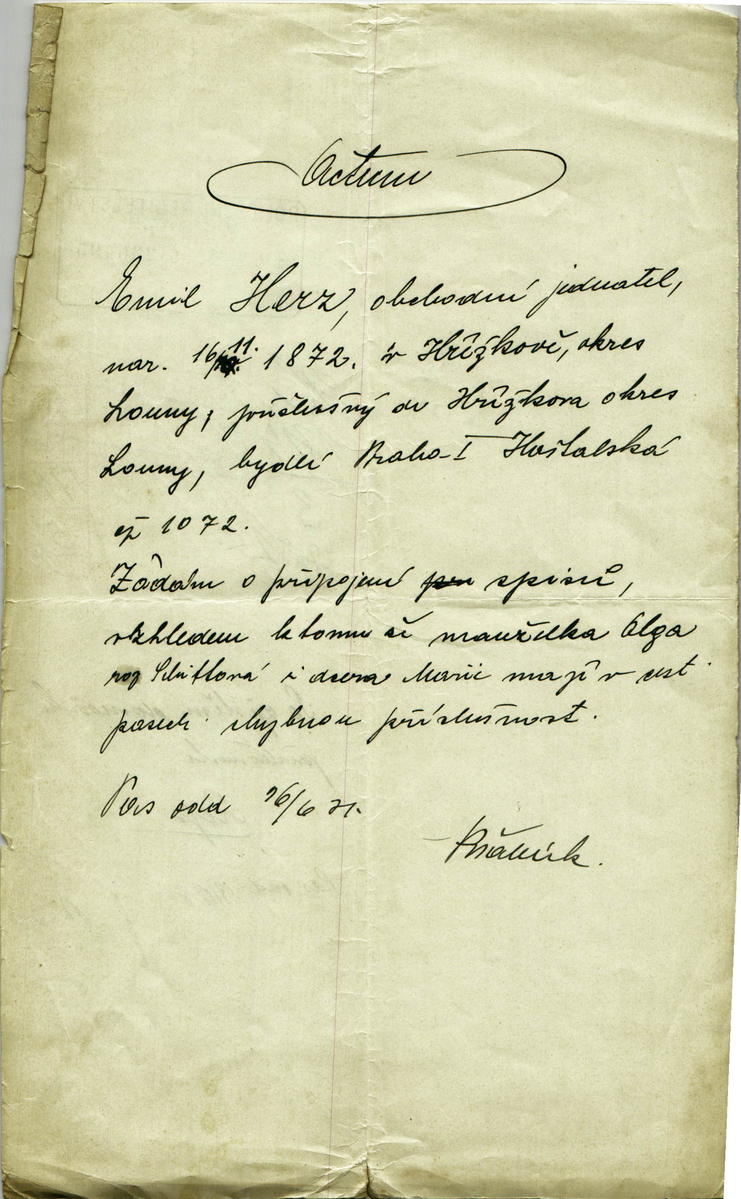 Actum
Emil Herz, obchodní jednatel,
nar. 16/11. 1872. v Hřížkově, okres
Louny, příslušný do Hřížkova okres
Louny, bydlí Praha-I Haštalská
čp 1072.
Žádám o připojení spisů,
vzhledem k tomu že manželka Olga
roz i dcera Marie mají v cest.
pasech chybnou příslušnost.
Pas odd 26/6 21.